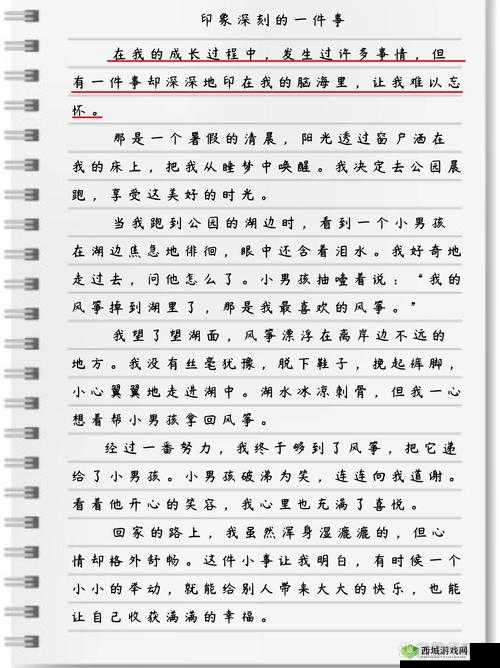 印象深刻的一件事
在我的成长过程中，发生过许多事情，但
有一件事却深深地印在我的脑海里，让我难以忘
怀。
那是一个暑假的清晨，阳光透过窗户洒在
我的床上，把我从睡梦中唤醒。我决定去公园晨
跑，享受这美好的时光。
当我跑到公园的湖边时，看到一个小男孩
在湖边焦急地徘徊，眼中还含着泪水。我好奇地
走过去，问他怎么了。小男孩抽噎着说：“我的
风筝掉到湖里了，那是我最喜欢的风筝。”
我望了望湖面，风筝漂浮在离岸边不远的
地方。我没有丝毫犹豫，脱下鞋子，挽起裤脚，
小心翼翼地走进湖中。湖水冰凉刺骨，但我一心
想着帮小男孩拿回风筝。
经过一番努力，我终于够到了风筝，把它递
给了小男孩。小男孩破涕为笑，连连向我道谢。
看着他开心的笑容，我心里也充满了喜悦。
回家的路上，我虽然浑身湿漉漉的，但心
情却格外舒畅。这件小事让我明白，有时候一个
小小的举动，就能给别人带来大大的快乐，也能
让自己收获满满的幸福。
西城游戏网